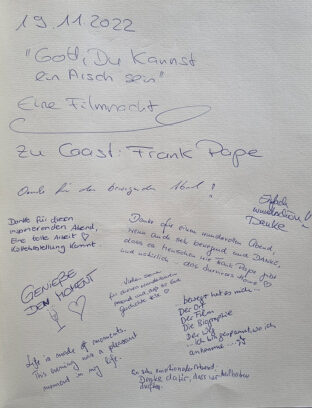 19.11.2022
"Gott, Du Kannst
ein Arsch sein"
Eine Filmnacht
zu Gast: Frank Pape
Danke für den bewegenden Abend!
Einfach
wunderschön!
Danke
Danke für diesen
inspirierenden Abend,
Eine tolle Arbeit ♡
Danke für einen wundervollen Abend,
wenn auch sehr bewegend und DANKE,
dass es Menschen wie Frank Pape gibt
und natürlich - das
GENIEßE
DEN MOMENT
♡
Vielen Dank
für diesen wunderbaren
Abend und
Geschichte
bewegt hat es mich...
Der Ort
Der Film
Die Biographie
Der Weg
... Ich bin gespannt, wo ich
ankomme...☆
Life is made of moments,
This evening was a pleasant
moment in my life.
Ein sehr emotionaler Abend,
Danke dafür, dass wir teilhaben
durften.